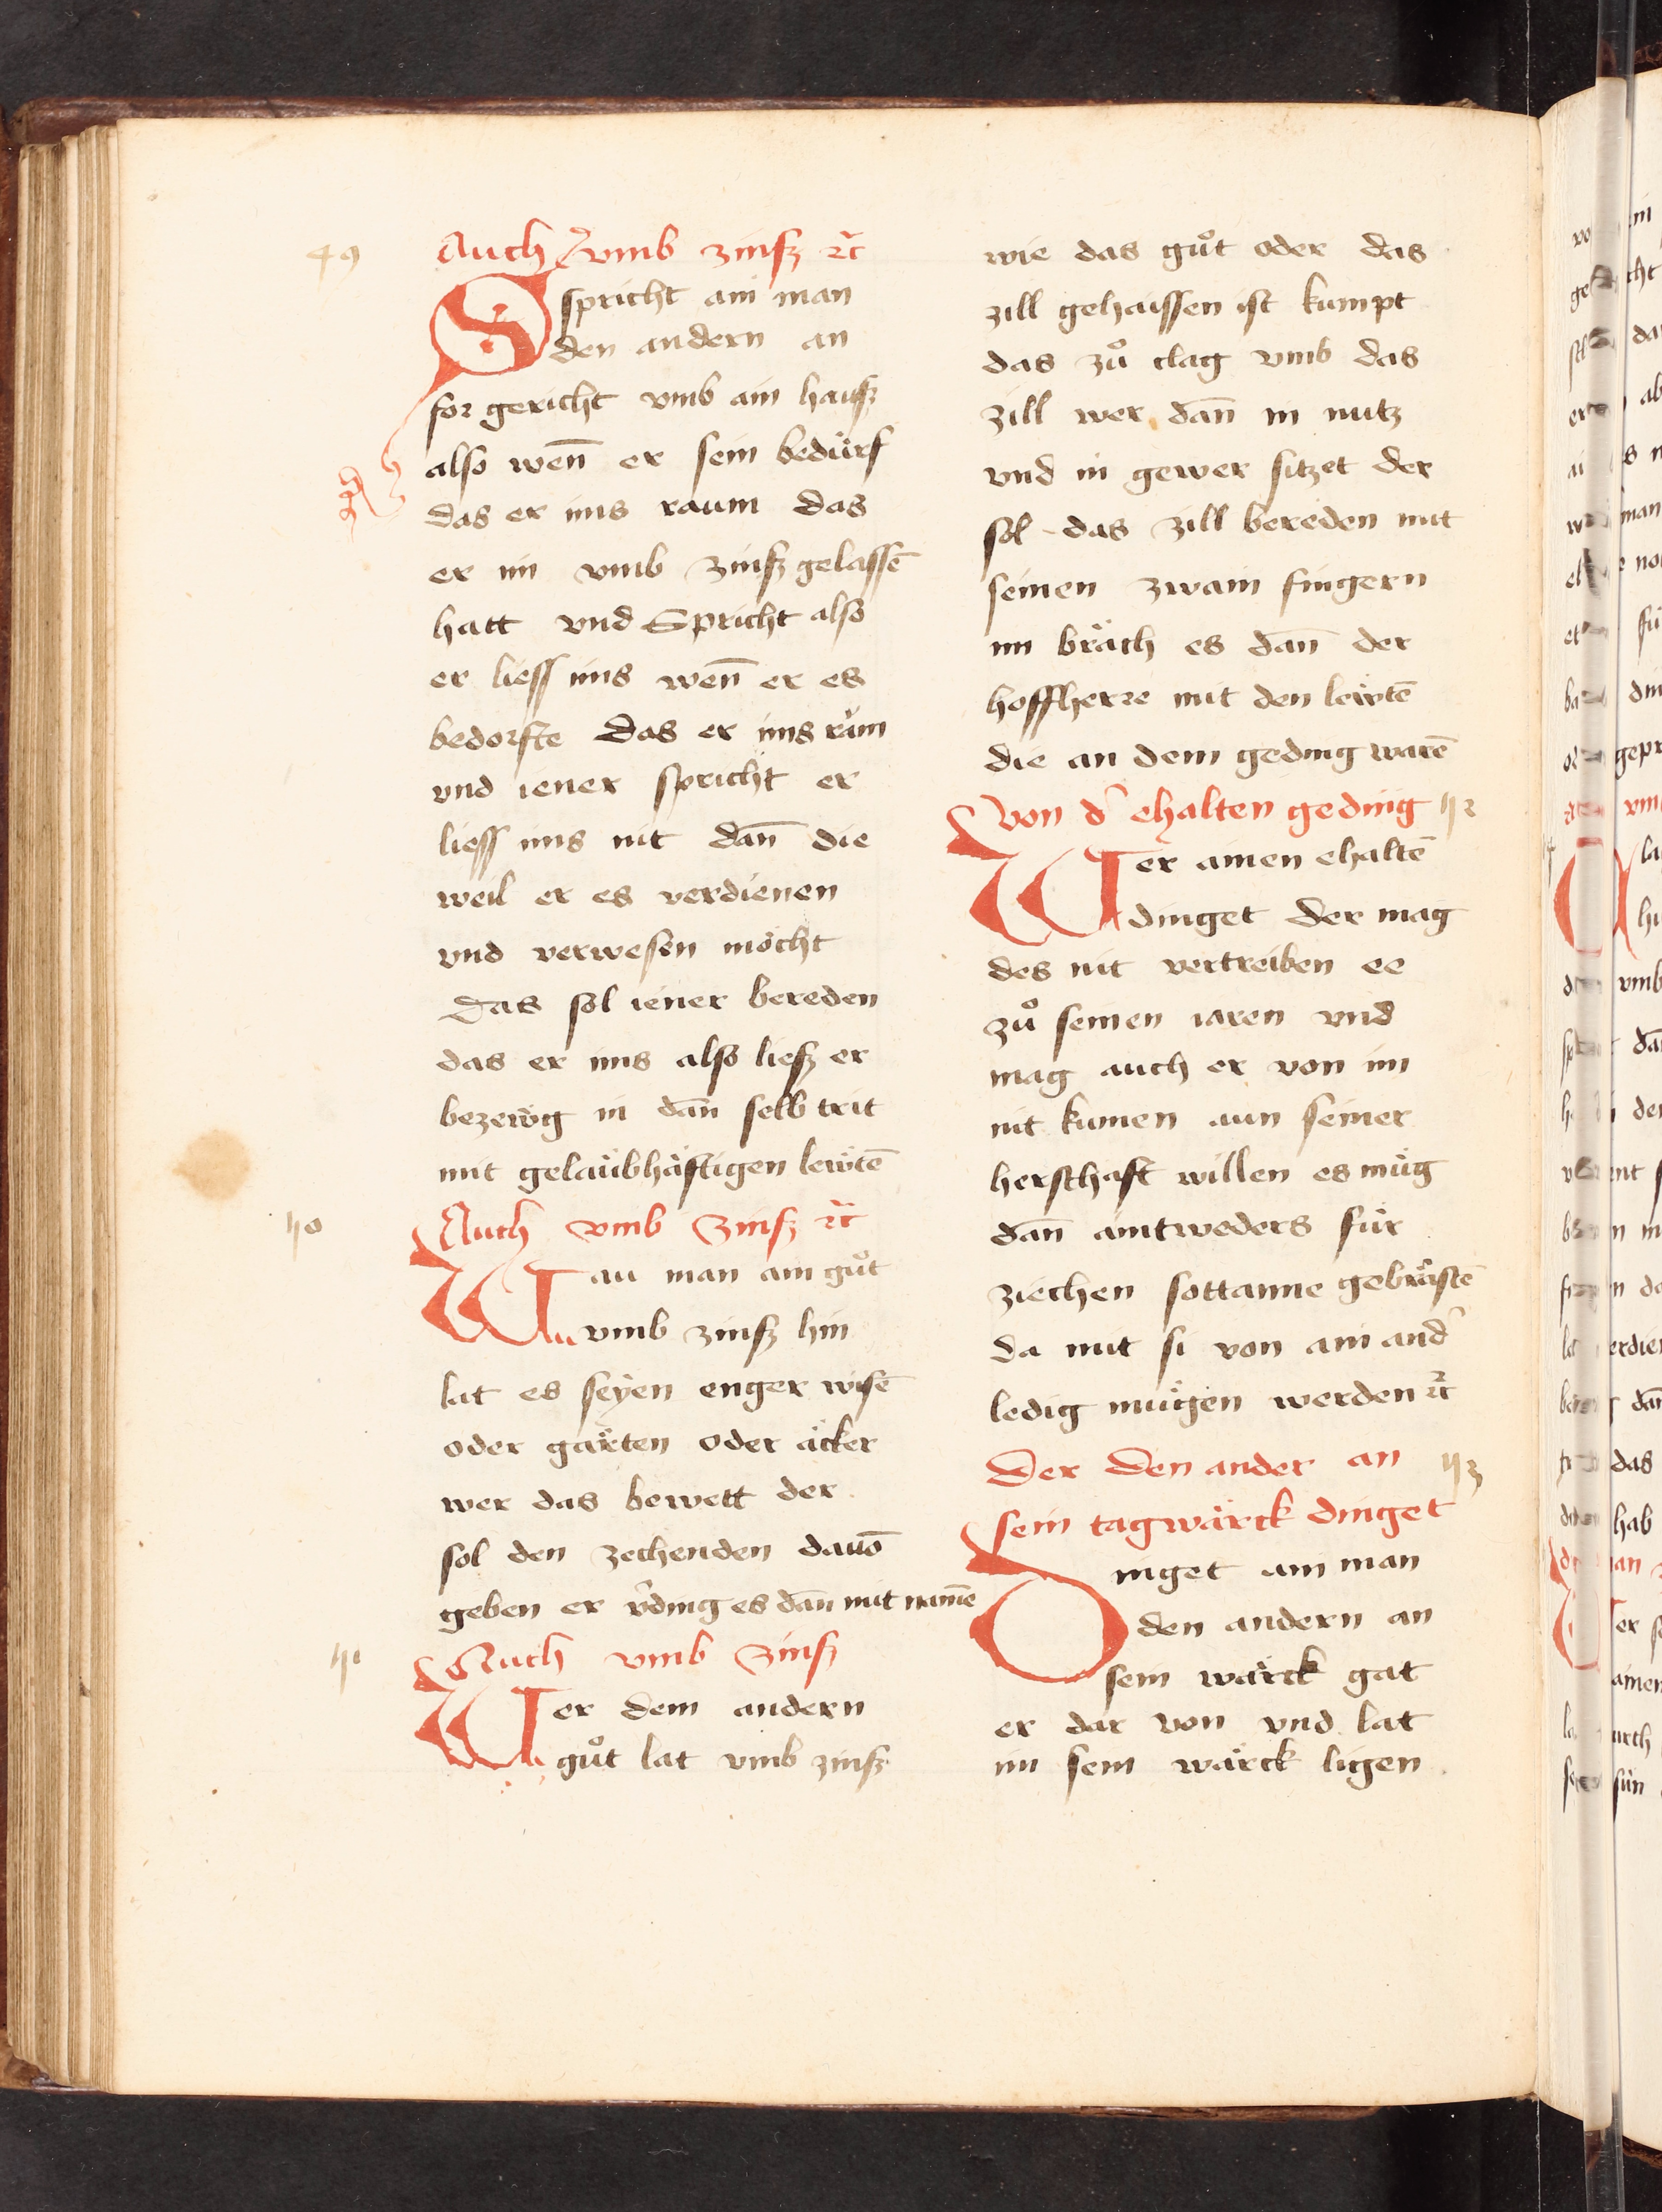 49
Auch vmb zinß ⁊c̃
Sspricht ain man
den andern an
for gericht vmb ain hauß
also wen̄ er sein bedürf
das er ims raum das
er im vmb zinß gelassē
hatt vnd Spricht also
er liess ims wen̄ er es
bedorfte das er ims rům
vnd iener spricht er
liess ims nit dan̄ die
weil er es verdienen
vnd verwesen möcht
Das sol iener bereden
das er ims also ließ er
bezewg in dan̄ selb trit
mit gelaübhäftigen lewtē
50
Auch vmb Zinß ⁊c̃
Wau man ain gůt
vmb zinß hin
lat es seÿen enger wisē
oder gärten oder äcker
wer das bewett der
sol den zechenden dauō
geben er v̄ding es dan̄ mit namē
51
Auch vmb Zinß
Wer dem andern
gůt lat vmb zinß
wie das gůt oder das
zill gehaissen ist kumpt
das zů clag vmb das
zill wer dan̄ in nutz
vnd in gewer sitzet der
sol das zill bereden mit
seinen zwain fingern
im bräch es dan̄ der
hoffherre mit den lewtē
die an dem geding warē
Von d̄ ehalten geding 52
Wer ainen ehaltē
dinget der mag
des nit vertreiben ee
zů seinen iaren vnd
mag auch er von im
nit kumen aun seiner
herschaft willen es müg
dan̄ aintweders für
ziechen sottanne gebrästē
da mit si von ain and̄
ledig mügen werden ⁊c̃
Der den ander an 53
sein tagwärck dinget
Dinget ain man
den andern an
sein wärck gat
er dar von vnd lat
im sein wärck ligen